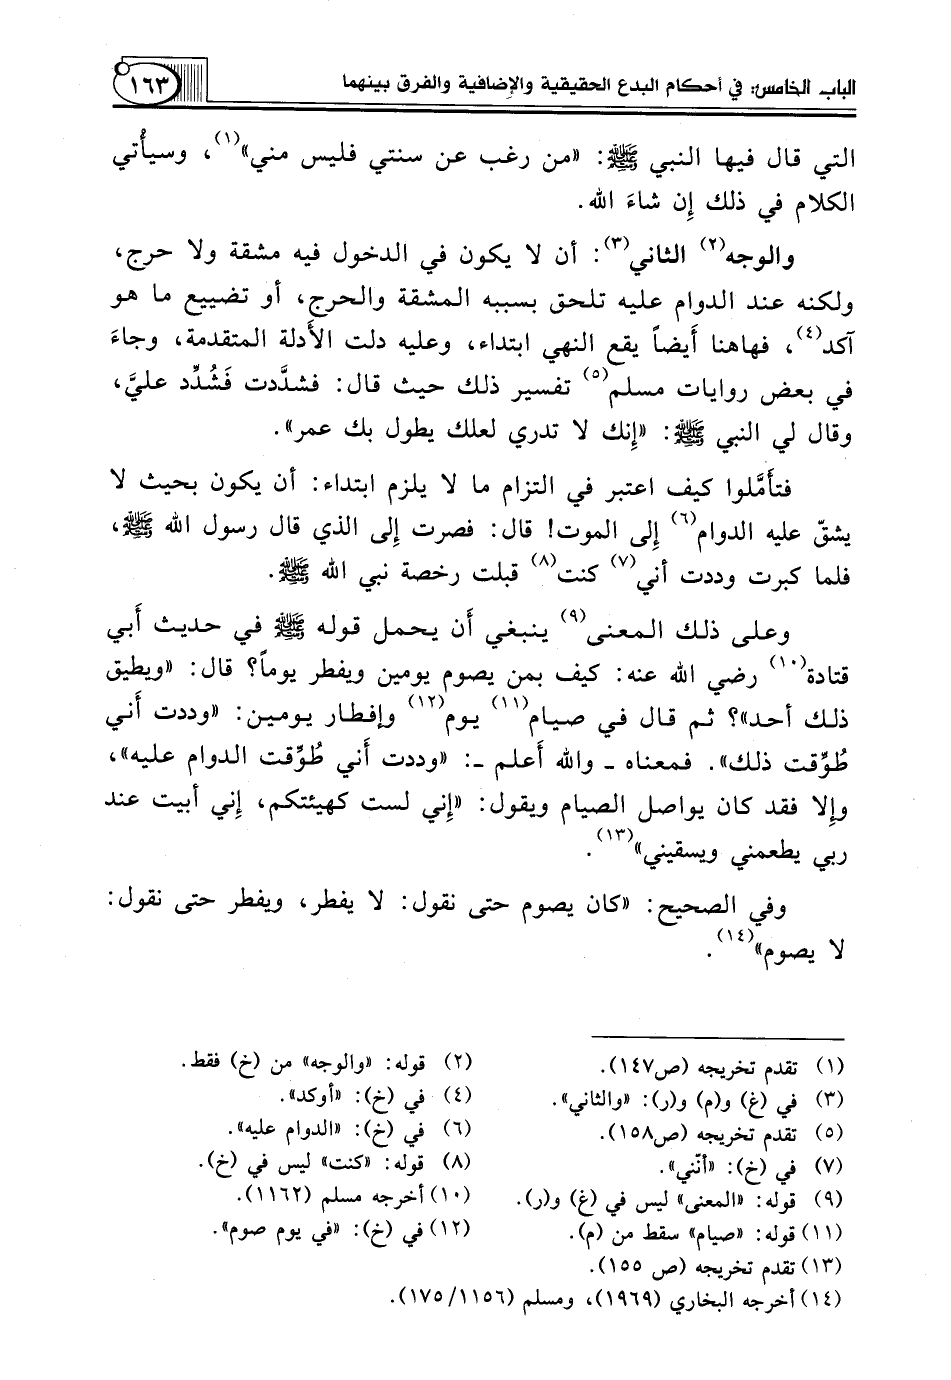 الباب الخامس: في أحكام البدع الحقيقية والإضافية والفرق بينهما ١٦٣
التي قال فيها النبي ﷺ: «من رغب عن سنتي فليس مني»(١)، وسيأتي
الكلام في ذلك إن شاءَ الله.
والوجه(٢) الثاني(٣): أن لا يكون في الدخول فيه مشقة ولا حرج،
ولكنه عند الدوام عليه تلحق بسببه المشقة والحرج، أو تضييع ما هو
آكد(٤)، فهاهنا أيضاً يقع النهي ابتداء، وعليه دلت الأَدلة المتقدمة، وجاءَ
في بعض روايات مسلم(٥) تفسير ذلك حيث قال: فشدَّدت فَشُدِّد عليَّ،
وقال لي النبي ﷺ: «إنك لا تدري لعلك يطول بك عمر».
فتأَمَّلوا كيف اعتبر في التزام ما لا يلزم ابتداء: أن يكون بحيث لا
يشقّ عليه الدوام(٦) إلى الموت! قال: فصرت إلى الذي قال رسول الله ﷺ،
فلما كبرت وددت أني(٧) كنت(٨) قبلت رخصة نبي الله ﷺ.
وعلى ذلك المعنى(٩) ينبغي أَن يحمل قوله ﷺ في حديث أَبي
قتادة(١٠) رضي الله عنه: كيف بمن يصوم يومين ويفطر يوماً؟ قال: «ويطيق
ذلك أحد»؟ ثم قال في صيام(١١) يوم(١٢) وإفطار يومين: «وددت أَني
طُوِّقت ذلك». فمعناه ـ والله أَعلم ـ: «وددت أَني طُوِّقت الدوام عليه»،
وإلا فقد كان يواصل الصيام ويقول: «إني لست كهيئتكم، إني أبيت عند
ربي يطعمني ويسقيني»(١٣).
وفي الصحيح: «كان يصوم حتى نقول: لا يفطر، ويفطر حتى نقول:
لا يصوم»(١٤).
(١) تقدم تخريجه (ص١٤٧). (٢) قوله: «والوجه» من (خ) فقط.
(٣) في (غ) و(م) و(ر): «والثاني». (٤) في (خ): «أوكد».
(٥) تقدم تخريجه (ص١٥٨). (٦) في (خ): «الدوام عليه».
(٧) في (خ): «أنّني». (٨) قوله: «كنت» ليس في (خ).
(٩) قوله: «المعنى» ليس في (غ) و(ر). (١٠) أخرجه مسلم (١١٦٢).
(١١) قوله: «صيام» سقط من (م). (١٢) في (خ): «في يوم صوم».
(١٣) تقدم تخريجه (ص ١٥٥).
(١٤) أخرجه البخاري (١٩٦٩)، ومسلم (١٧٥/١١٥٦).